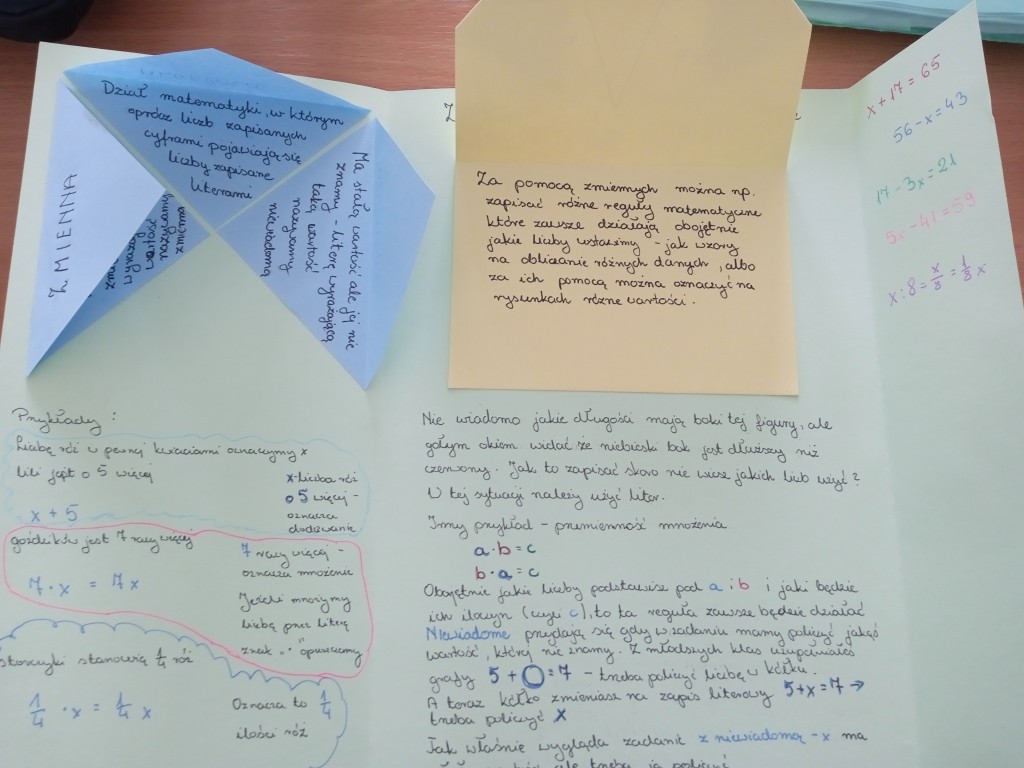 Dział matematyki, w którym
oprócz liczb zapisanych
cyframi pojawiają się
liczby zapisane
literami
ZMIENNA
wartość
nazywamy
Ma stałą wartość ale jej nie
znamy - literę wyrażającą
taką wartość
nazywamy
niewiadomą
Za pomocą zmiennych można np.
zapisać różne reguły matematyczne
które zawsze działają obojętnie
jakie liczby wstawimy - jak wzory
na obliczanie różnych danych, albo
za ich pomocą można oznaczyć na
rysunkach różne wartości.
x + 17 = 65
56 - x = 43
17 - 3x = 21
5x - 41 = 59
x : 8 = x/8 = 1/8 x
Przykłady :
Liczbę róż w pewnej kwiaciarni oznaczymy x
lilii jest o 5 więcej
x - liczba róż
o 5 więcej -
oznacza
dodawanie
x + 5
goździków jest 7 razy więcej
7 · x = 7x
7 razy więcej -
oznacza mnożenie
Jeżeli mnożymy
liczbę przez literę
znak „·" opuszczamy
storczyki stanowią 1/4 róż
1/4 · x = 1/4 x
Oznacza to 1/4
ilości róż
Nie wiadomo jakie długości mają boki tej figury, ale
gołym okiem widać że niebieski bok jest dłuższy niż
czerwony. Jak to zapisać skoro nie wiesz jakich liczb użyć?
W tej sytuacji należy użyć liter.
Inny przykład - przemienność mnożenia
a · b = c
b · a = c
Obojętnie jakie liczby podstawisz pod a i b i jaki będzie
ich iloczyn (czyli c), to ta reguła zawsze będzie działać
Niewiadome przydają się gdy w zadaniu mamy policzyć jakąś
wartość, której nie znamy. Z młodszych klas uzupełniałeś
grafy 5 + O = 7 - trzeba policzyć liczbę w kółku.
A teraz kółko zmieniasz na zapis literowy 5 + x = 7 →
trzeba policzyć x
Jak właśnie wygląda zadanie z niewiadomą - x ma
ale trzeba ją policzyć